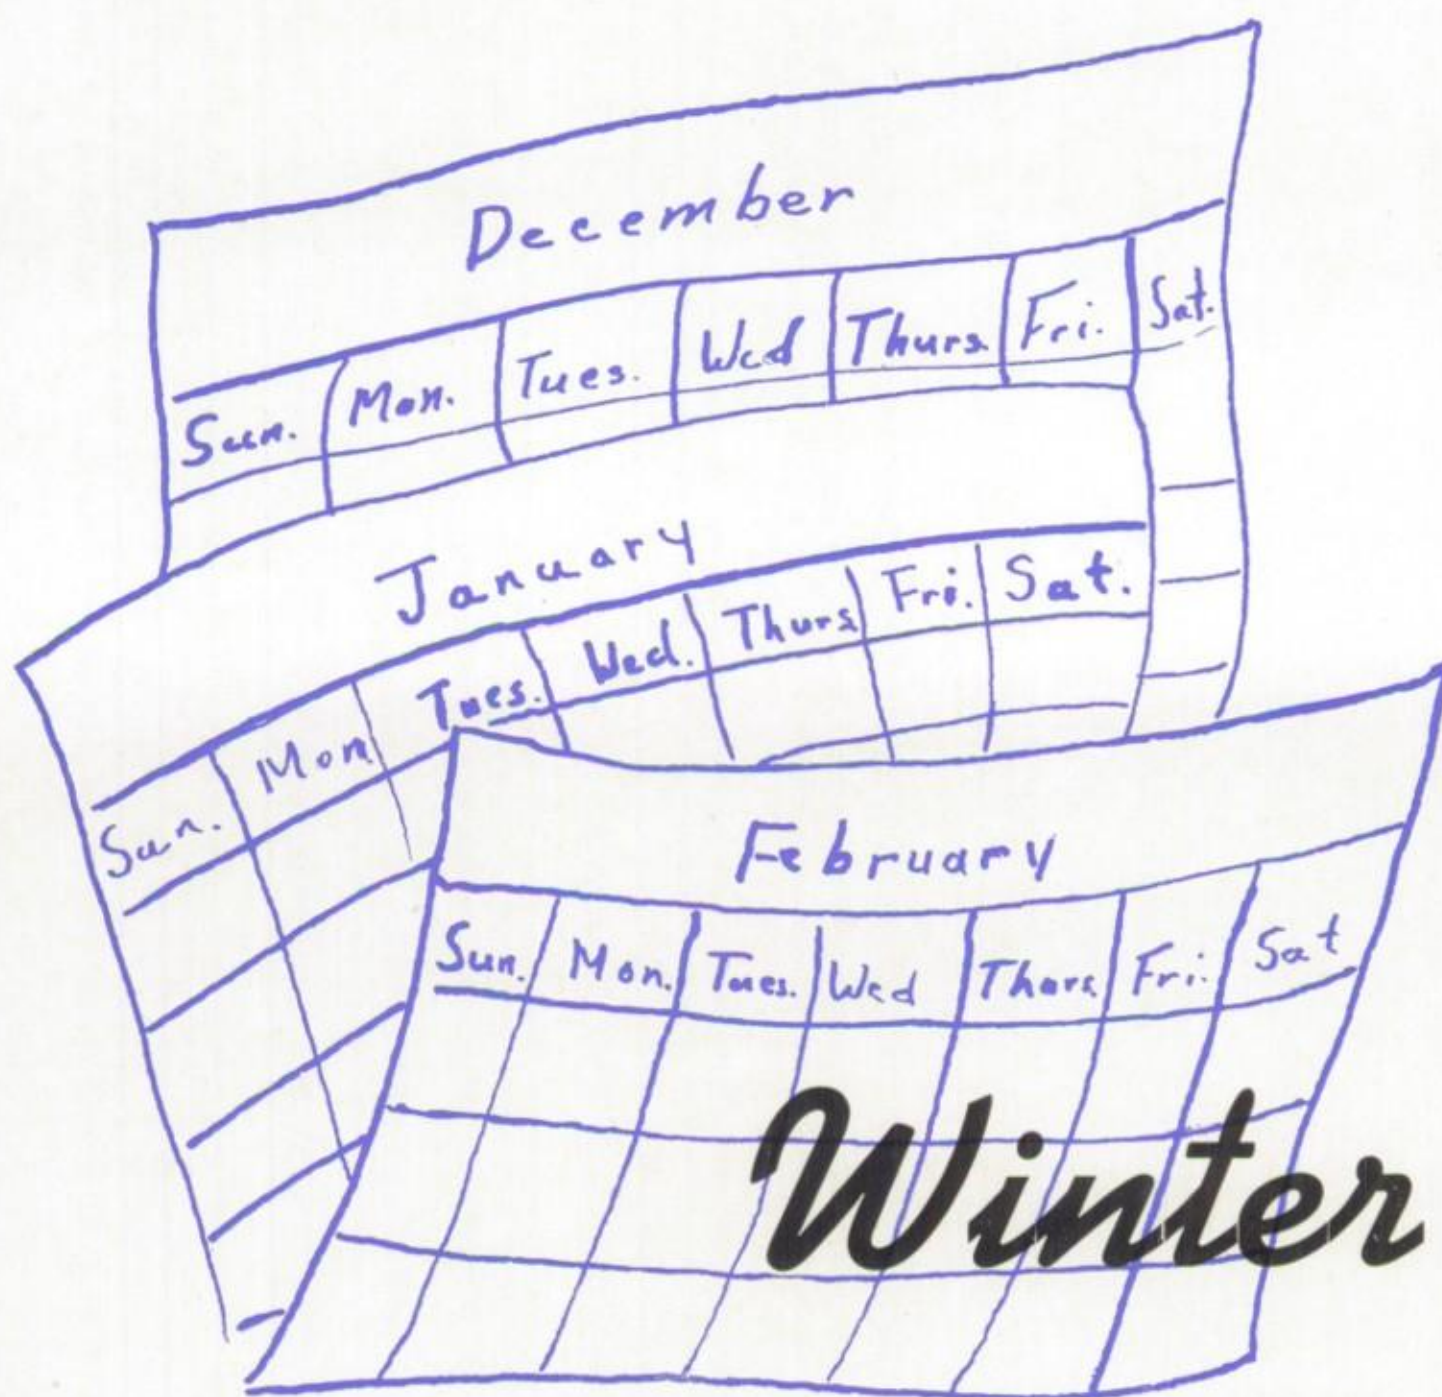 December
Sun. Mon. Tues. Wed Thurs. Fri. Sat.
January
Sun. Mon Tues. Wed. Thurs Fri. Sat.
February
Sun. Mon. Tues. Wed Thurs Fri. Sat
Winter